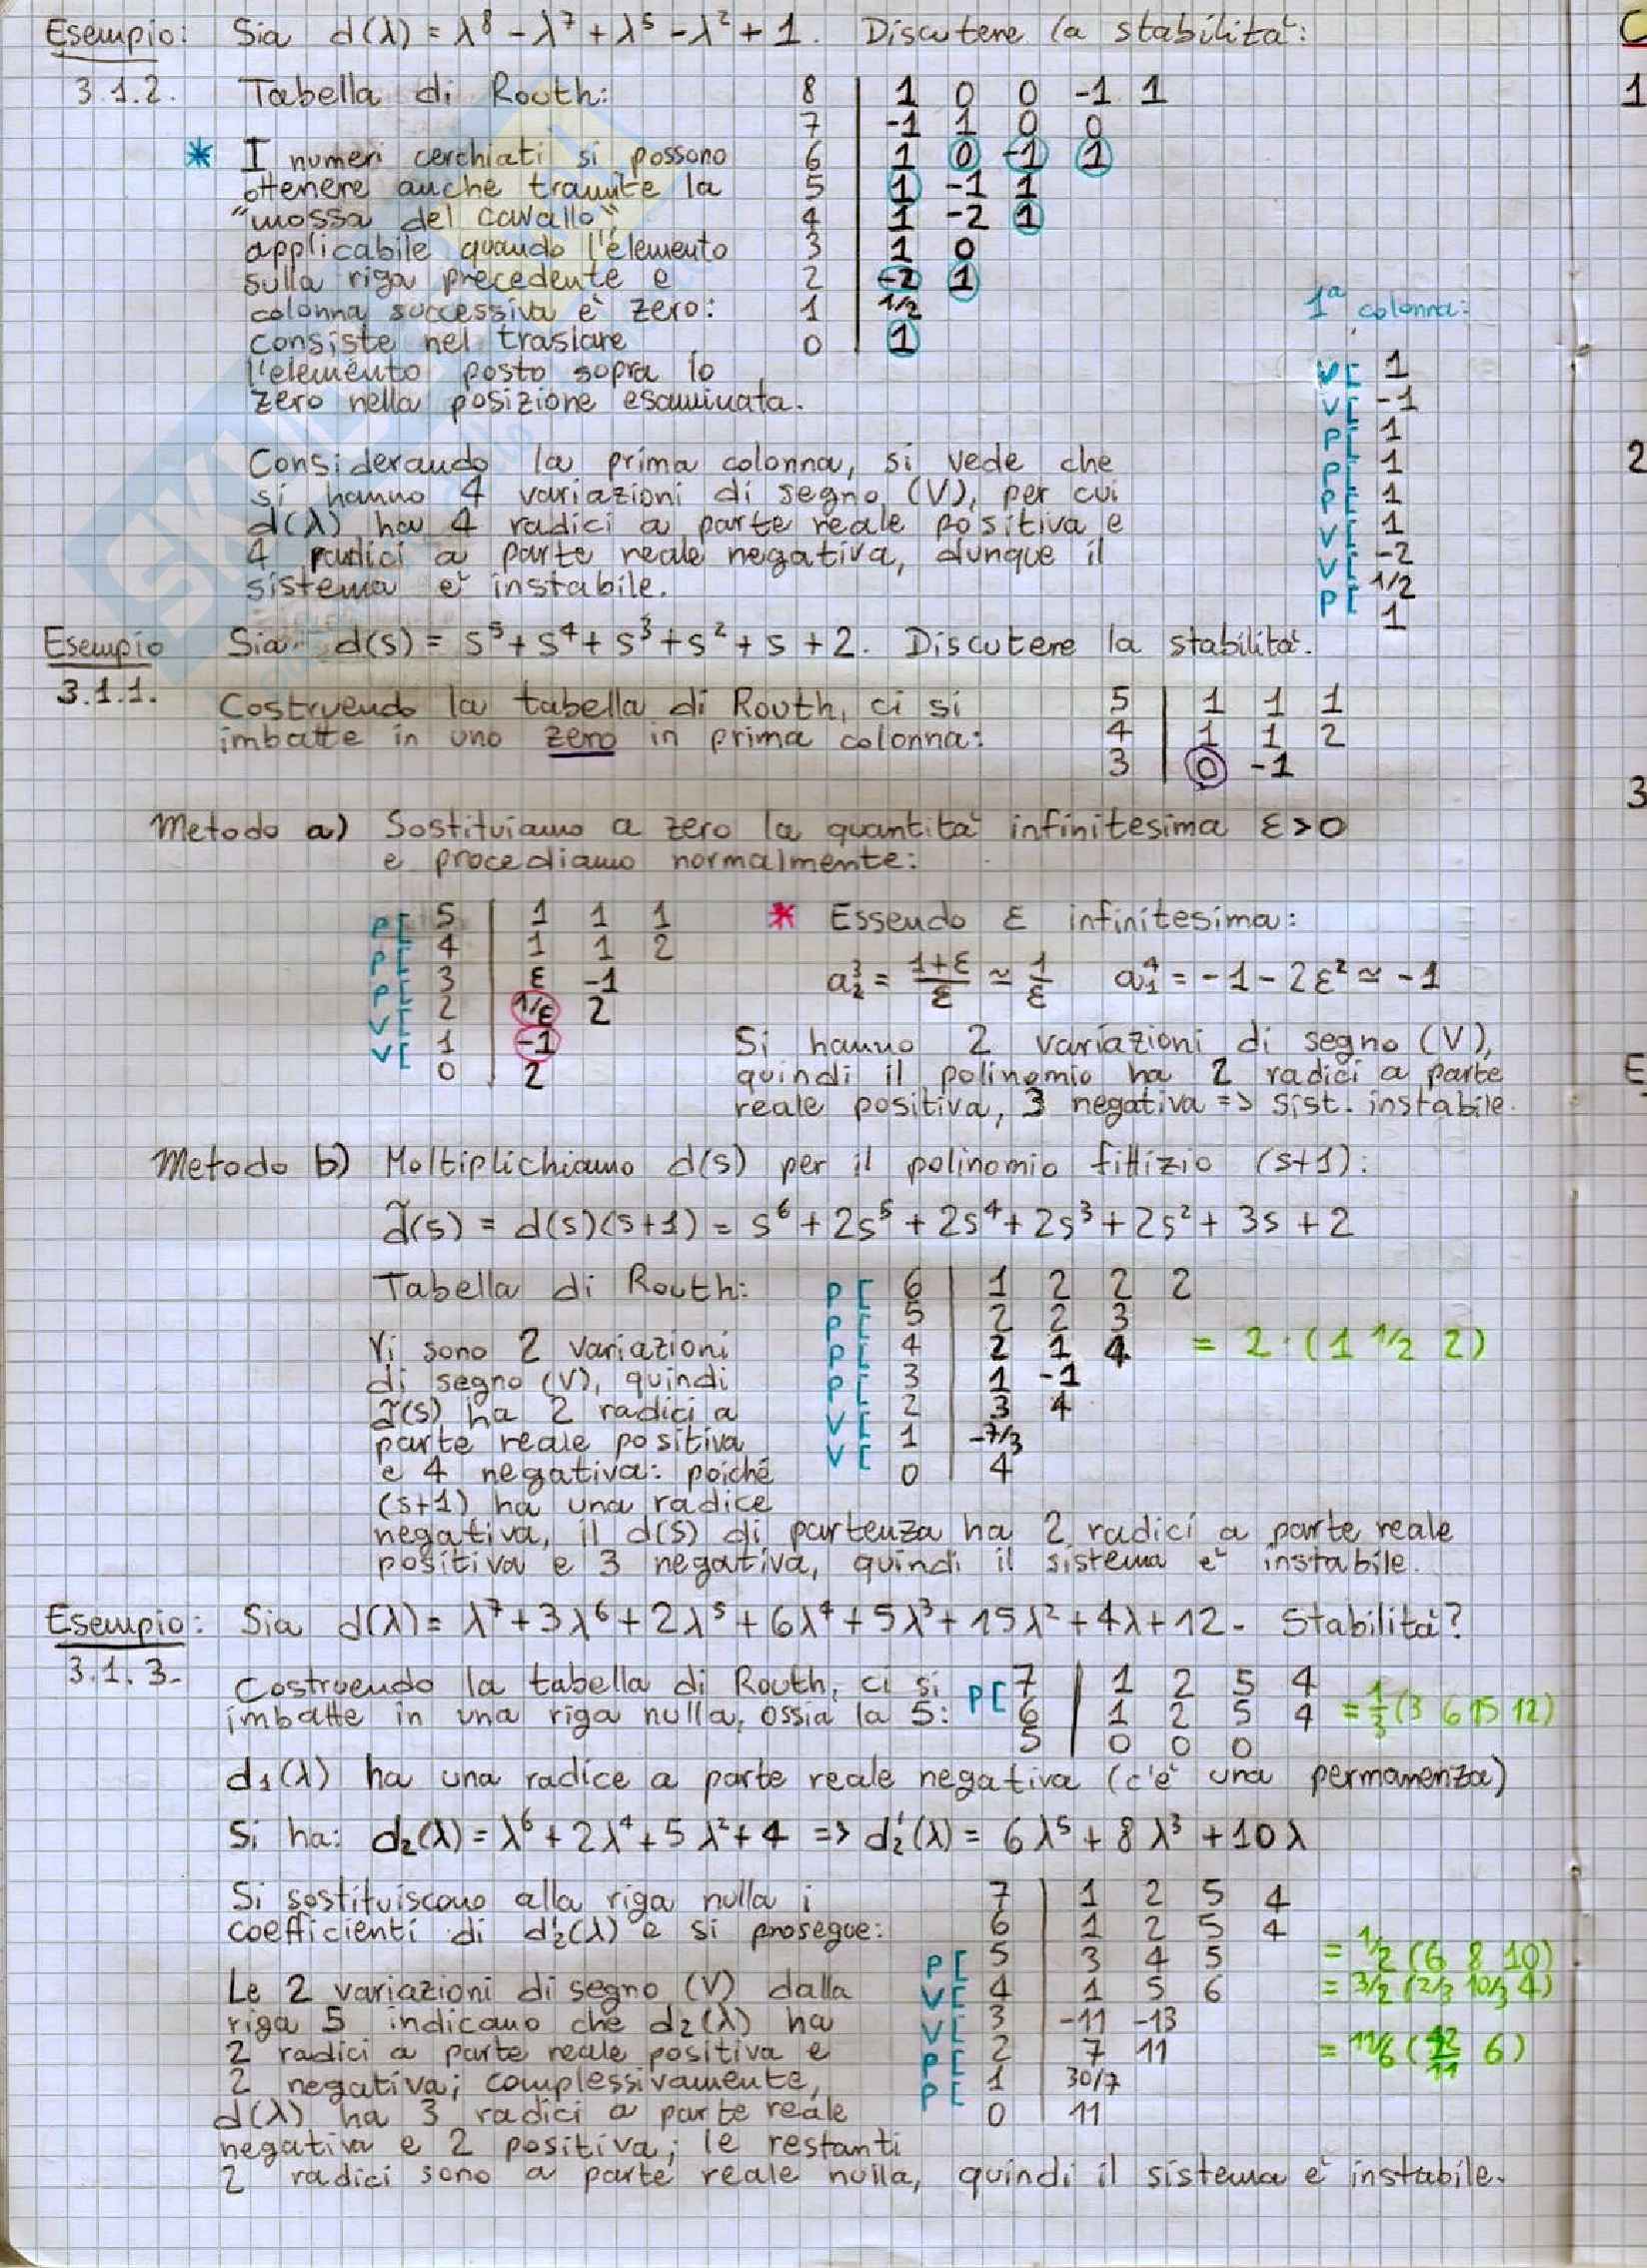 Esempio: Sia d(λ) = λ⁸ - λ⁷ + λ⁵ - λ² + 1. Discutere la stabilità:
3.1.2. Tabella di Routh: 8 | 1 0 0 -1 1
7 | -1 1 0 0
* I numeri cerchiati si possono 6 | 1 0 -1 1
ottenere anche tramite la 5 | 1 -1 1
"mossa del cavallo", 4 | 1 -2 1
applicabile quando l'elemento 3 | 1 0
sulla riga precedente e 2 | -2 1
colonna successiva è zero: 1 | 1/2
consiste nel traslare 0 | 1
l'elemento posto sopra lo
zero nella posizione esaminata.
1ª colonna:
V[ 1
V[ -1
P[ 1
P[ 1
P[ 1
V[ 1
V[ -2
P[ 1/2
1
Considerando la prima colonna, si vede che
si hanno 4 variazioni di segno (V), per cui
d(λ) ha 4 radici a parte reale positiva e
4 radici a parte reale negativa, dunque il
sistema è instabile.
Esempio Sia d(s) = s⁵ + s⁴ + s³ + s² + s + 2. Discutere la stabilità.
3.1.1. Costruendo la tabella di Routh, ci si 5 | 1 1 1
imbatte in uno zero in prima colonna: 4 | 1 1 2
3 | 0 -1
Metodo a) Sostituiamo a zero la quantità infinitesima ε>0
e procediamo normalmente:
P[ 5 | 1 1 1
P[ 4 | 1 1 2
P[ 3 | ε -1
V[ 2 | 1/ε 2
V[ 1 | -1
0 | 2
* Essendo ε infinitesima:
a₂³ = (1+ε)/ε ≃ 1/ε a₁⁴ = -1 - 2ε² ≃ -1
Si hanno 2 variazioni di segno (V),
quindi il polinomio ha 2 radici a parte
reale positiva, 3 negativa => sist. instabile.
Metodo b) Moltiplichiamo d(s) per il polinomio fittizio (s+1):
d̃(s) = d(s)(s+1) = s⁶ + 2s⁵ + 2s⁴ + 2s³ + 2s² + 3s + 2
Tabella di Routh: P[ 6 | 1 2 2 2
P[ 5 | 2 2 3
Vi sono 2 variazioni P[ 4 | 2 1 4 = 2·(1 1/2 2)
di segno (V), quindi P[ 3 | 1 -1
d̃(s) ha 2 radici a V[ 2 | 3 4
parte reale positiva V[ 1 | -7/3
e 4 negativa: poiché 0 | 4
(s+1) ha una radice
negativa, il d(s) di partenza ha 2 radici a parte reale
positiva e 3 negativa, quindi il sistema è instabile.
Esempio: Sia d(λ) = λ⁷ + 3λ⁶ + 2λ⁵ + 6λ⁴ + 5λ³ + 15λ² + 4λ + 12. Stabilità?
3.1.3. Costruendo la tabella di Routh, ci si P[ 7 | 1 2 5 4
imbatte in una riga nulla, ossia la 5: 6 | 1 2 5 4 = 1/3 (3 6 15 12)
5 | 0 0 0
d₁(λ) ha una radice a parte reale negativa (c'è una permanenza)
Si ha: d₂(λ) = λ⁶ + 2λ⁴ + 5λ² + 4 => d₂'(λ) = 6λ⁵ + 8λ³ + 10λ
Si sostituiscono alla riga nulla i 7 | 1 2 5 4
coefficienti di d₂'(λ) e si prosegue: 6 | 1 2 5 4
P[ 5 | 3 4 5 = 1/2 (6 8 10)
Le 2 variazioni di segno (V) dalla V[ 4 | 1 5 6 = 3/2 (2/3 10/3 4)
riga 5 indicano che d₂(λ) ha V[ 3 | -11 -13
2 radici a parte reale positiva e P[ 2 | 7 11 = 11/6 (42/11 6)
2 negativa; complessivamente, P[ 1 | 30/7
d(λ) ha 3 radici a parte reale 0 | 11
negativa e 2 positiva; le restanti
2 radici sono a parte reale nulla, quindi il sistema è instabile.
C
1
2
3
E